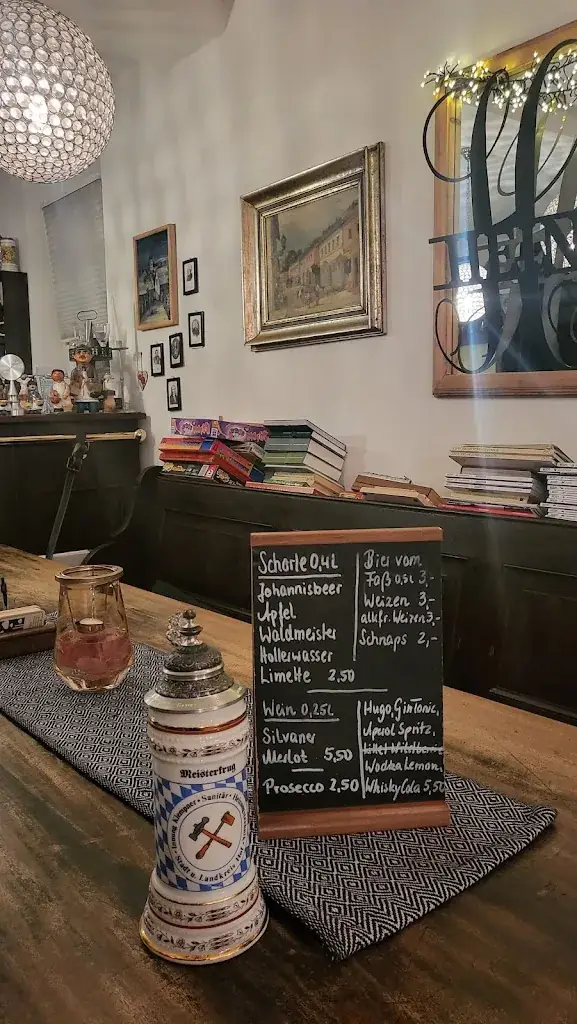 Schorle 0,4L
Johannisbeer
Apfel
Waldmeister
Hollerwasser
Limette 2,50
Bier vom
Faß 0,5L 3,-
Weizen 3,-
alkfr. Weizen 3,-
Schnaps 2,-
Wein 0,25L
Silvaner
Merlot 5,50
Prosecco 2,50
Hugo, Gin Tonic,
Aperol Spritz,
Wodka Lemon,
Whisky Cola 5,50
Meisterkrug
Innung Klempner · Sanitär ·
Stadt u. Landkreis